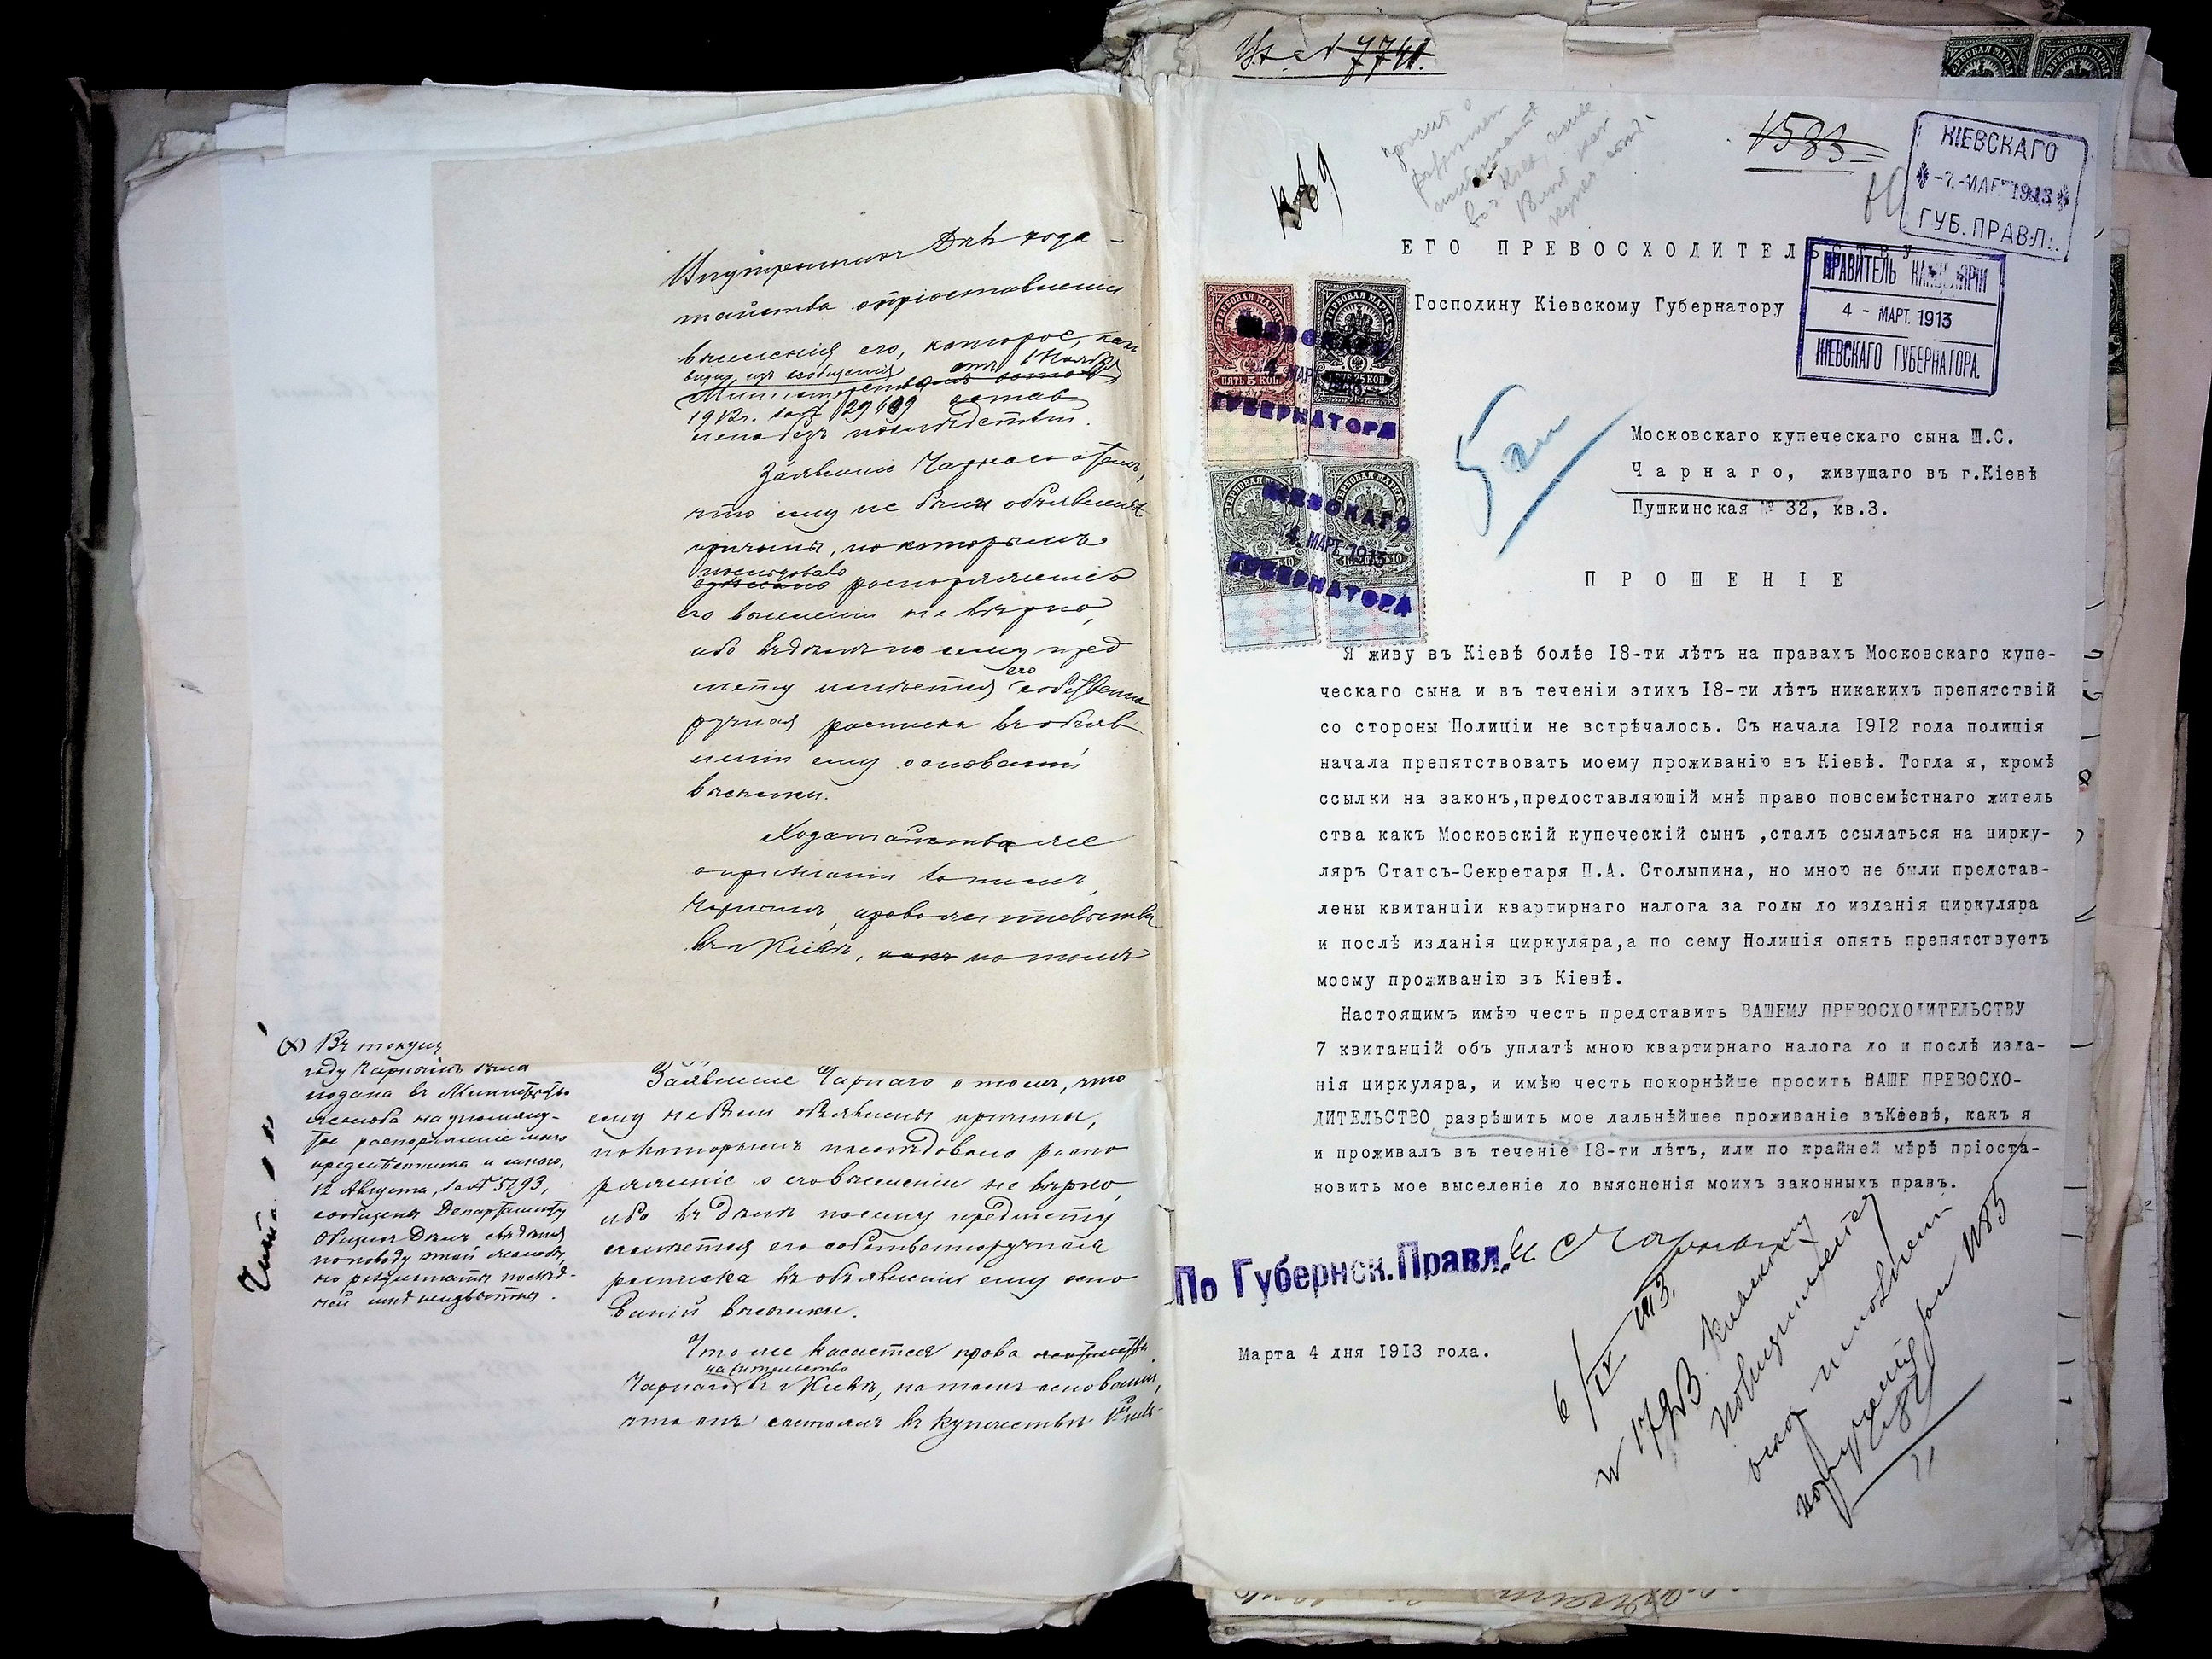 Внутреннихъ Дѣлъ хода-
тайства о пріостановленіи
выселенія его, которое, какъ
видно изъ сообщенія
1912 г. за № 29609 остав
лено безъ послѣдствій.
Заявленіе Чарнаго о томъ,
что ему не были объявлены
причины, по которымъ
послѣдовало распоряженіе о
его выселеніи не вѣрно,
ибо въ дѣлѣ по сему пред
мету имѣется его собственно
ручная росписка въ объяв
леніи ему основаній
высылки.
Ходатайство же
Чарнымъ, права жительства
въ г. Кіевѣ, по тому
(х) Въ текущ
году Чарнымъ была
подана въ Министерство
жалоба на упомяну-
тое распоряженіе моего
предмѣстника и мною,
12 Августа, за № 5793,
сообщены Департаменту
Общихъ Дѣлъ свѣдѣнія
по поводу этой жалобы,
но результаты послѣд-
ней мнѣ неизвѣстны.
Заявленіе Чарнаго о томъ, что
ему не были объявлены причины,
по которымъ послѣдовало распо
ряженіе о его выселеніи не вѣрно,
ибо въ дѣлѣ по сему предмету
имѣется его собственноручная
росписка въ объявленіи ему осно
ваній высылки.
Что же касается права
на жительство
Чарнаго въ г. Кіевѣ, на томъ основаніи,
что онъ состоялъ въ купечествѣ 1ой
№ 7741.
1583
КІЕВСКАГО
-7.-МАРТ 1913
ГУБ. ПРАВЛ.
ЕГО ПРЕВОСХОДИТЕЛЬСТВУ
Господину Кіевскому Губернатору
ПРАВИТЕЛЬ КАНЦЕЛЯРІИ
4 - МАРТ. 1913
КІЕВСКАГО ГУБЕРНАТОРА.
ГЕРБОВАЯ МАРКА
ПЯТЬ 5 КОП.
ГЕРБОВАЯ МАРКА
КІЕВСКАГО
4. МАРТ. 1913
ГУБЕРНАТОРА
ГЕРБОВАЯ МАРКА
ГЕРБОВАЯ МАРКА
КІЕВСКАГО
4. МАРТ. 1913
ГУБЕРНАТОРА
Московскаго купеческаго сына Ш.С.
Чарнаго, живущаго въ г.Кіевѣ
Пушкинская № 32, кв.3.
ПРОШЕНІЕ
Я живу въ Кіевѣ болѣе 18-ти лѣтъ на правахъ Московскаго купе-
ческаго сына и въ теченіи этихъ 18-ти лѣтъ никакихъ препятствій
со стороны Полиціи не встрѣчалось. Съ начала 1912 года полиція
начала препятствовать моему проживанію въ Кіевѣ. Тогда я, кромѣ
ссылки на законъ,предоставляющій мнѣ право повсемѣстнаго житель
ства какъ Московскій купеческій сынъ ,сталъ ссылаться на цирку-
ляръ Статсъ-Секретаря П.А. Столыпина, но мною не были представ-
лены квитанціи квартирнаго налога за годы до изданія циркуляра
и послѣ изданія циркуляра,а по сему Полиція опять препятствуетъ
моему проживанію въ Кіевѣ.
Настоящимъ имѣю честь представить ВАШЕМУ ПРЕВОСХОДИТЕЛЬСТВУ
7 квитанцій объ уплатѣ мною квартирнаго налога до и послѣ изда-
нія циркуляра, и имѣю честь покорнѣйше просить ВАШЕ ПРЕВОСХО-
ДИТЕЛЬСТВО разрѣшить мое дальнѣйшее проживаніе въКіевѣ, какъ я
и проживалъ въ теченіе 18-ти лѣтъ, или по крайней мѣрѣ пріоста-
новить мое выселеніе до выясненія моихъ законныхъ правъ.
По Губернск.Правл.
Ш С Чарный
Марта 4 дня 1913 года.